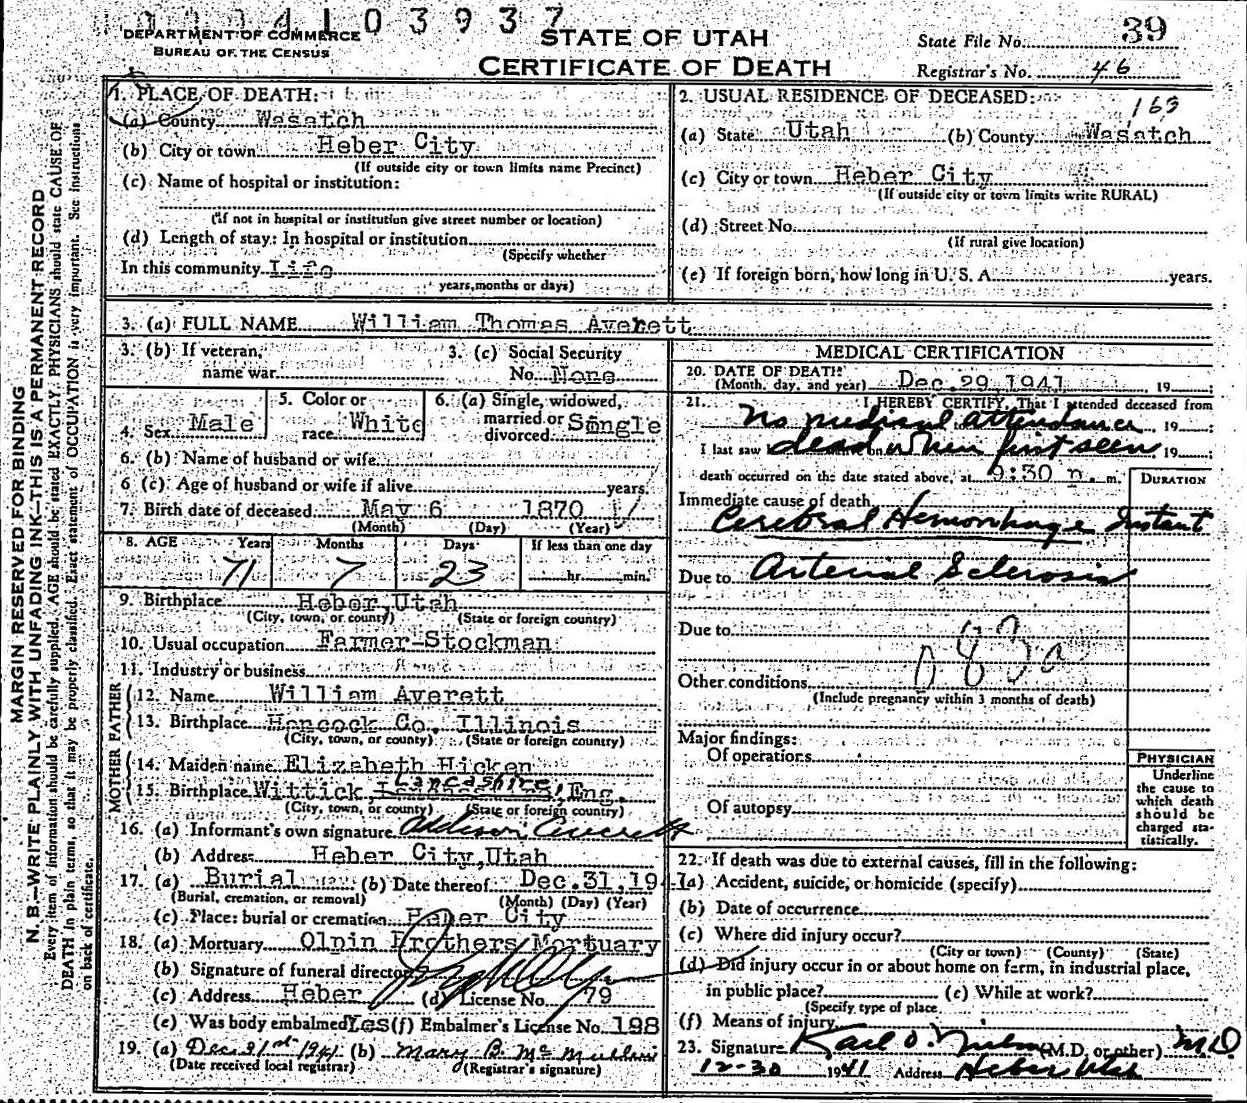 1114103937
DEPARTMENT OF COMMERCE
BUREAU OF THE CENSUS
STATE OF UTAH
CERTIFICATE OF DEATH
State File No. 39
Registrar's No. 46
MARGIN RESERVED FOR BINDING
N. B.—WRITE PLAINLY WITH UNFADING INK—THIS IS A PERMANENT RECORD
Every item of information should be carefully supplied. AGE should be stated EXACTLY. PHYSICIANS should state CAUSE OF
DEATH in plain terms, so that it may be properly classified. Exact statement of OCCUPATION is very important. See instructions
on back of certificate.
1. PLACE OF DEATH:
(a) County Wasatch
(b) City or town Heber City
(If outside city or town limits name Precinct)
(c) Name of hospital or institution:
(If not in hospital or institution give street number or location)
(d) Length of stay: In hospital or institution
(Specify whether
In this community Life
years, months or days)
2. USUAL RESIDENCE OF DECEASED:
163
(a) State Utah (b) County Wasatch
(c) City or town Heber City
(If outside city or town limits write RURAL)
(d) Street No.
(If rural give location)
(e) If foreign born, how long in U. S. A. years.
3. (a) FULL NAME William Thomas Averett
3. (b) If veteran, name war
3. (c) Social Security No. None
4. Sex Male
5. Color or race White
6. (a) Single, widowed, married or divorced Single
6. (b) Name of husband or wife
6 (c) Age of husband or wife if alive years
7. Birth date of deceased May 6 1870
(Month) (Day) (Year)
8. AGE Years Months Days If less than one day
71 7 23 hr. min.
9. Birthplace Heber, Utah
(City, town, or county) (State or foreign country)
10. Usual occupation Farmer-Stockman
11. Industry or business
FATHER
12. Name William Averett
13. Birthplace Hancock Co, Illinois
(City, town, or county) (State or foreign country)
MOTHER
14. Maiden name Elizabeth Hicken
15. Birthplace Wittick, Lancashire, Eng.
(City, town, or county) (State or foreign country)
16. (a) Informant's own signature Addison Averett
(b) Address Heber City, Utah
17. (a) Burial (b) Date thereof Dec. 31, 194
(Burial, cremation, or removal) (Month) (Day) (Year)
(c) Place: burial or cremation Heber City
18. (a) Mortuary Olpin Brothers Mortuary
(b) Signature of funeral director
(c) Address Heber (d) License No. 79
(e) Was body embalmed Yes (f) Embalmer's License No. 198
19. (a) Dec 31st 1941 (b) Mary B. McMullin
(Date received local registrar) (Registrar's signature)
MEDICAL CERTIFICATION
20. DATE OF DEATH
(Month, day, and year) Dec. 29 1941 19
21. I HEREBY CERTIFY, That I attended deceased from
No medical attendance, 19
I last saw h dead when first seen 19
death occurred on the date stated above, at 9:30 p. m.
DURATION
Immediate cause of death
Cerebral Hemorrhage Instant
Due to Arterial Sclerosis
Due to
083a
Other conditions
(Include pregnancy within 3 months of death)
Major findings:
Of operations
Of autopsy
PHYSICIAN
Underline
the cause to
which death
should be
charged sta-
tistically.
22. If death was due to external causes, fill in the following:
(a) Accident, suicide, or homicide (specify)
(b) Date of occurrence
(c) Where did injury occur?
(City or town) (County) (State)
(d) Did injury occur in or about home on farm, in industrial place,
in public place? (e) While at work?
(Specify type of place
(f) Means of injury
23. Signature Karl O. Nielson (M.D. or other) M.D.
12-30 1941 Address Heber Utah